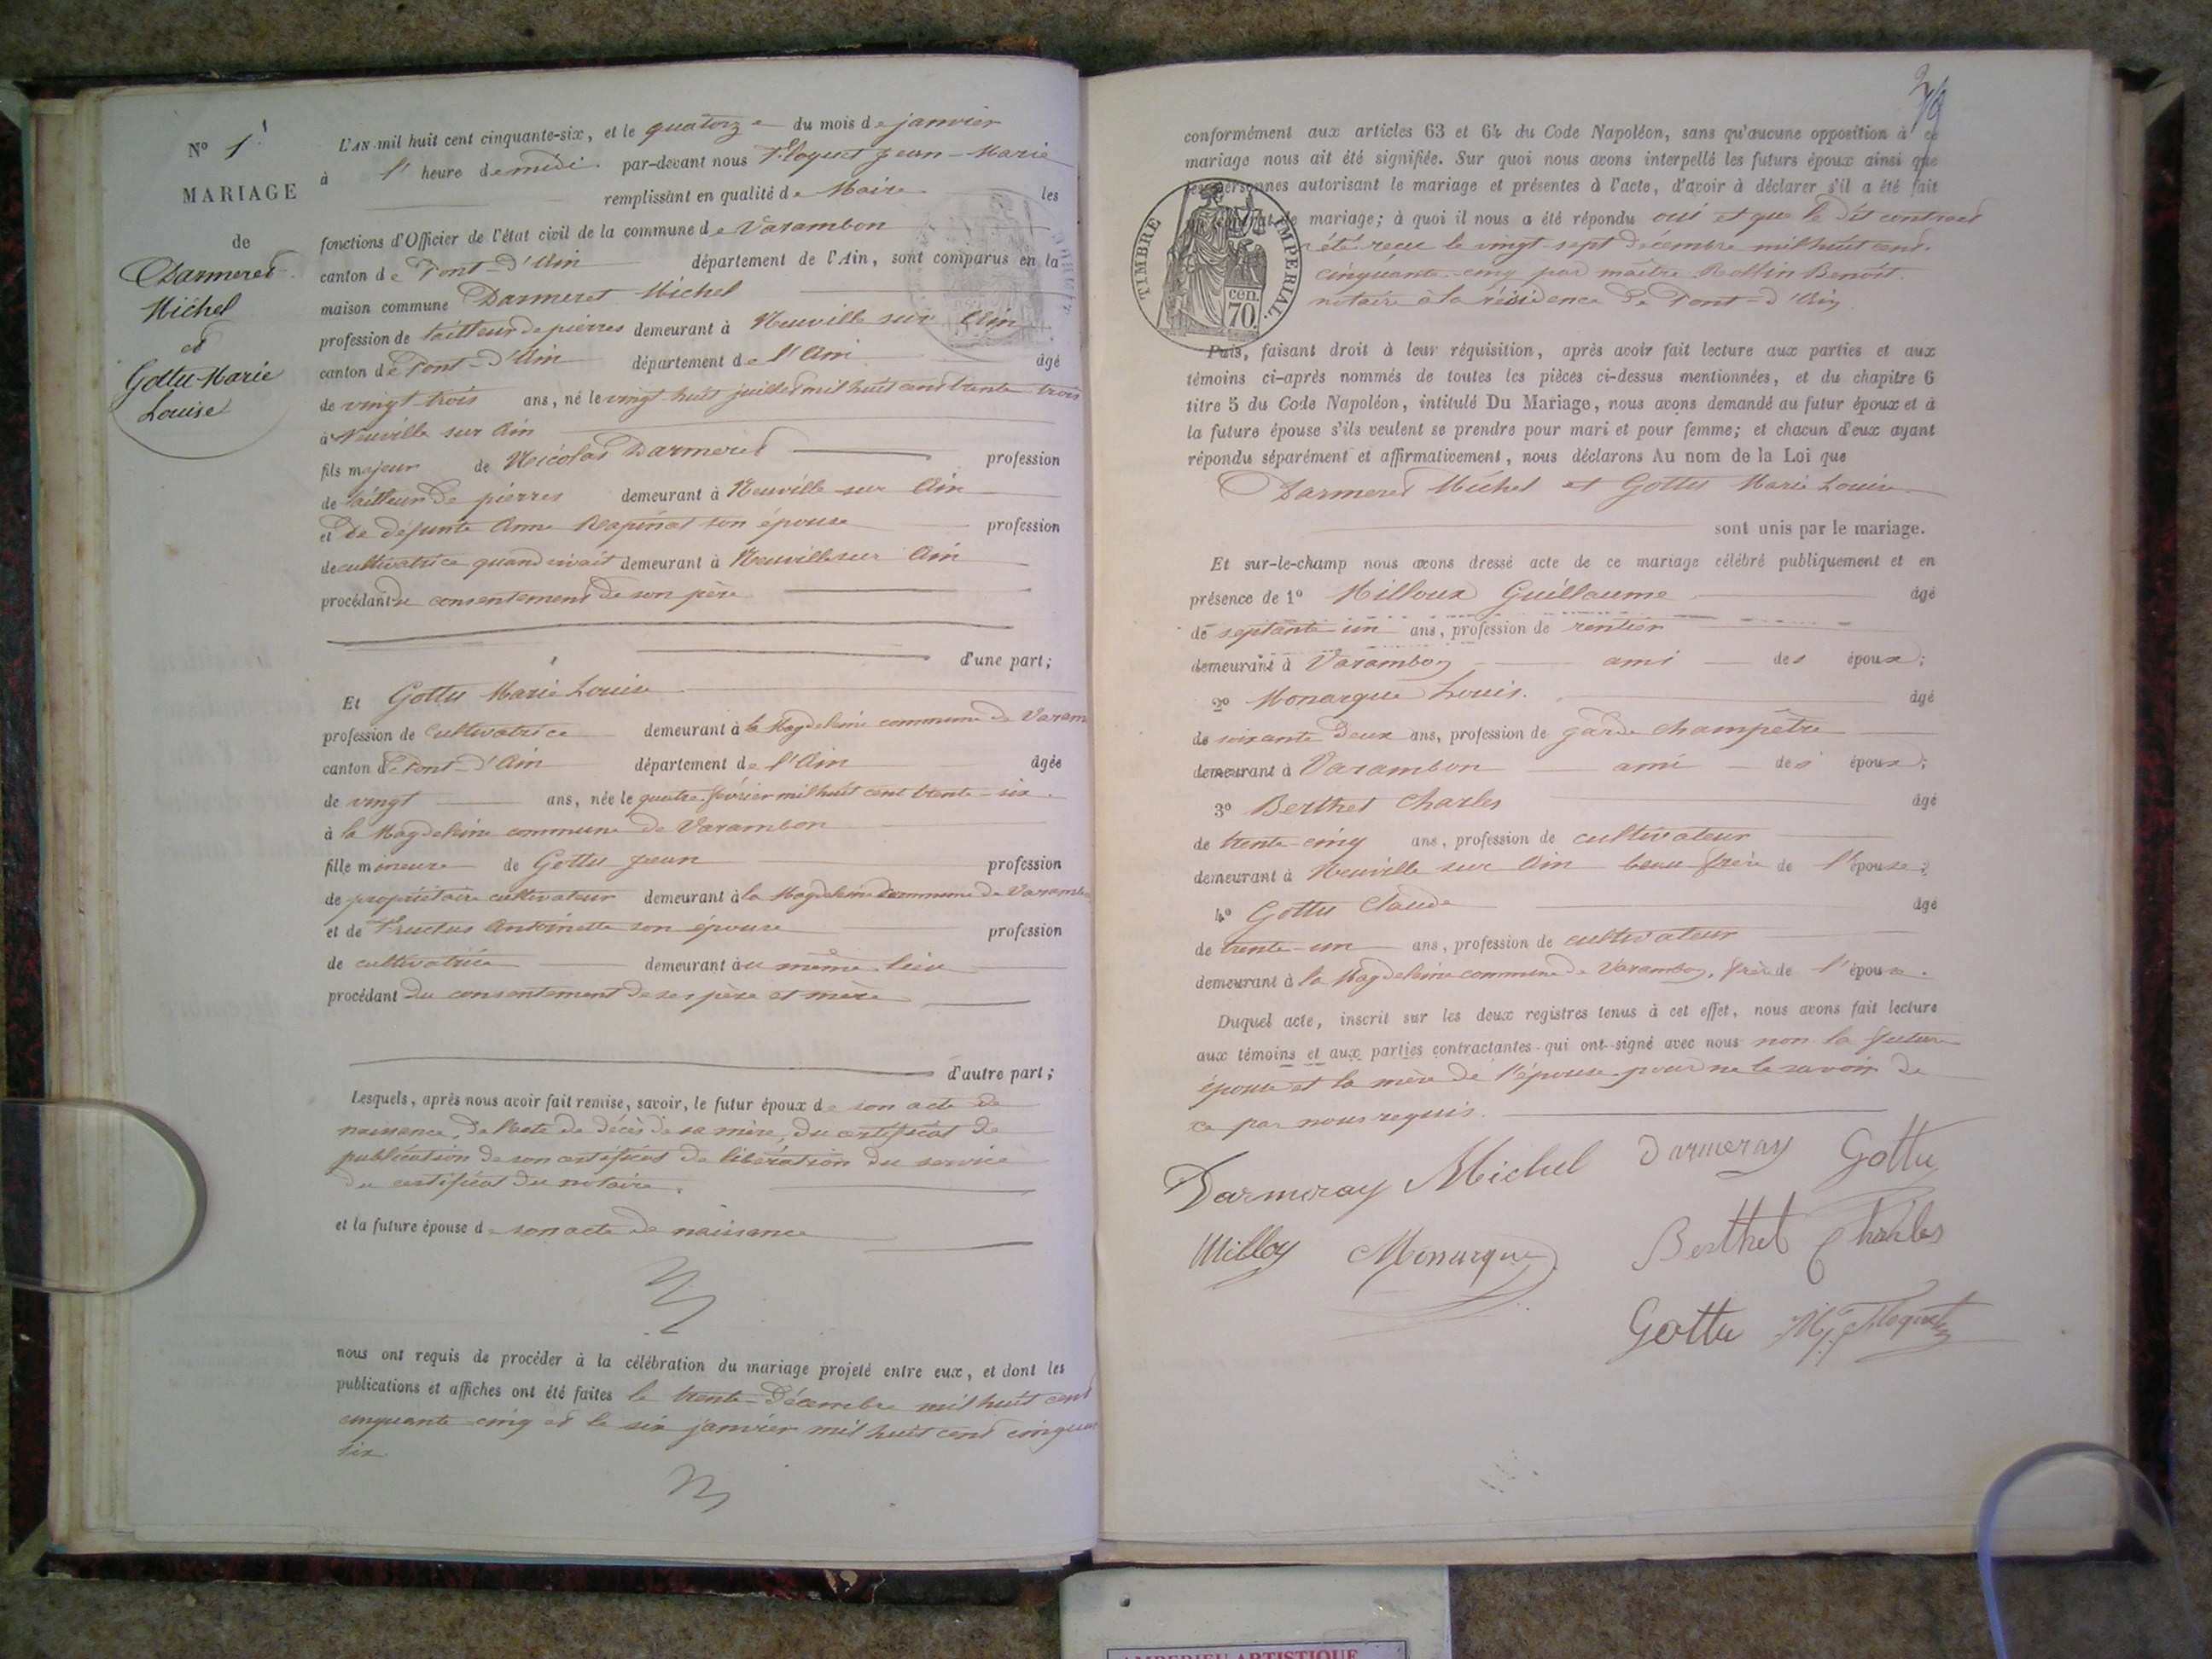 N° 1
MARIAGE
de
Darmeret
Michel
et
Gottu Marie
Louise
L'AN mil huit cent cinquante-six, et le quatorze du mois de janvier
à l' heure de midi par-devant nous Floquet Jean-Marie
remplissant en qualité de Maire les
fonctions d'Officier de l'état civil de la commune de Varambon
canton de Pont-d'Ain département de l'Ain, sont comparus en la
maison commune Darmeret Michel
profession de tailleur de pierres demeurant à Neuville sur Ain
canton de Pont-d'Ain département de l'Ain âgé
de vingt-trois ans, né le vingt huit juillet mil huit cent trente trois
à Neuville sur Ain
fils majeur de Nicolas Darmeret profession
de tailleur de pierres demeurant à Neuville sur Ain
et de défunte Anne Rapinat son épouse profession
de cultivatrice quand vivait demeurant à Neuville sur Ain
procédant du consentement de son père
d'une part;
Et Gottu Marie Louise
profession de cultivatrice demeurant à la Magdeleine commune de Varam
canton de Pont-d'Ain département de l'Ain âgée
de vingt ans, née le quatre février mil huit cent trente-six
à la Magdeleine commune de Varambon
fille mineure de Gottu Jean profession
de propriétaire cultivateur demeurant à la Magdeleine commune de Varambo
et de Fructus Antoinette son épouse profession
de cultivatrice demeurant au même lieu
procédant du consentement de ses père et mère
d'autre part;
Lesquels, après nous avoir fait remise, savoir, le futur époux de son acte de
naissance, de l'acte de décès de sa mère, du certificat de
publication de son certificat de libération du service
du certificat du notaire.
et la future épouse de son acte de naissance
nous ont requis de procéder à la célébration du mariage projeté entre eux, et dont les
publications et affiches ont été faites le trente Décembre mil huit cent
cinquante cinq et le six janvier mil huit cent cinquan
six
conformément aux articles 63 et 64 du Code Napoléon, sans qu'aucune opposition à ce
mariage nous ait été signifiée. Sur quoi nous avons interpellé les futurs époux ainsi que
les personnes autorisant le mariage et présentes à l'acte, d'avoir à déclarer s'il a été fait
un contrat de mariage; à quoi il nous a été répondu oui et que le dit contrat
a été reçu le vingt-sept décembre mil huit cent
cinquante-cinq par maître Rollin Benoit
notaire à la résidence de Pont-d'Ain
TIMBRE IMPERIAL.
70 cen.
Puis, faisant droit à leur réquisition, après avoir fait lecture aux parties et aux
témoins ci-après nommés de toutes les pièces ci-dessus mentionnées, et du chapitre 6
titre 5 du Code Napoléon, intitulé Du Mariage, nous avons demandé au futur époux et à
la future épouse s'ils veulent se prendre pour mari et pour femme; et chacun d'eux ayant
répondu séparément et affirmativement, nous déclarons Au nom de la Loi que
Darmeret Michel et Gottu Marie Louise
sont unis par le mariage.
Et sur-le-champ nous avons dressé acte de ce mariage célébré publiquement et en
présence de 1° Milloux Guillaume âgé
de septante-un ans, profession de rentier
demeurant à Varambon ami des époux;
2° Monarque Louis. âgé
de soixante deux ans, profession de garde champêtre
demeurant à Varambon ami des époux;
3° Berthet Charles âgé
de trente-cinq ans, profession de cultivateur
demeurant à Neuville sur Ain beau-frère de l'épouse;
4° Gottu Claude âgé
de trente-un ans, profession de cultivateur
demeurant à la Magdeleine commune de Varambon, frère de l'épouse.
Duquel acte, inscrit sur les deux registres tenus à cet effet, nous avons fait lecture
aux témoins et aux parties contractantes qui ont signé avec nous non la future
épouse et la mère de l'épouse pour ne le savoir de
ce par nous requis.
Darmeray Michel Darmeray Gottu
Milloy Monarque Berthet Charles
Gottu Floquet
AMBERIEU ARTISTIQUE